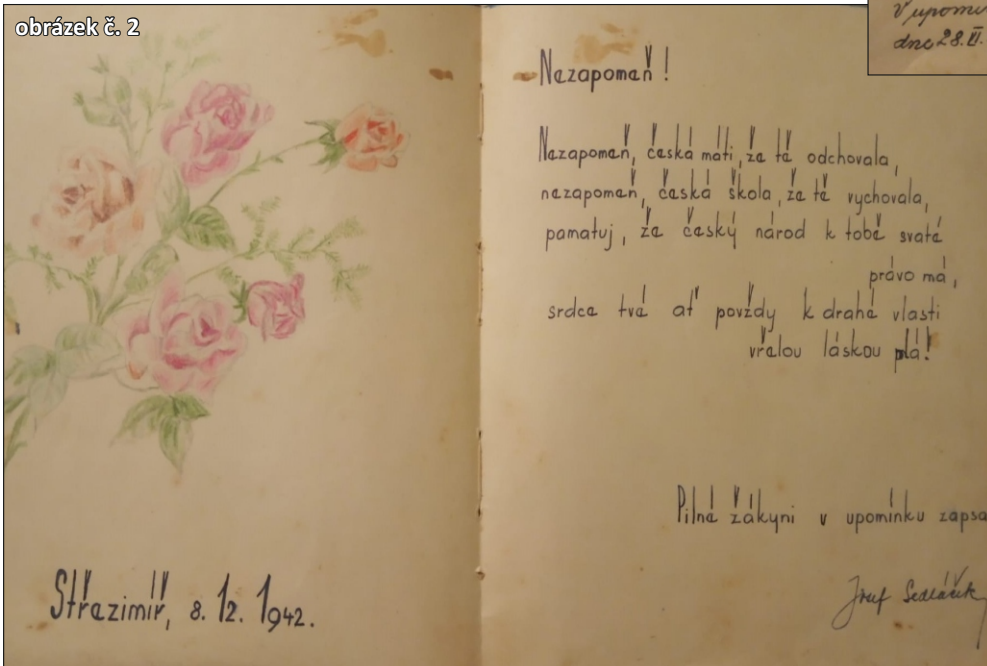 obrázek č. 2
V upomí
dne 28.
Nezapomeň!
Nezapomeň, česká máti, že tě odchovala,
nezapomeň, česká škola, že tě vychovala,
pamatuj, že český národ k tobě svaté
právo má,
srdce tvé ať povždy k drahé vlasti
vřelou láskou plá!
Pilné žákyni v upomínku zapsa
Josef Sedláček
Střezimíř, 8. 12. 1942.